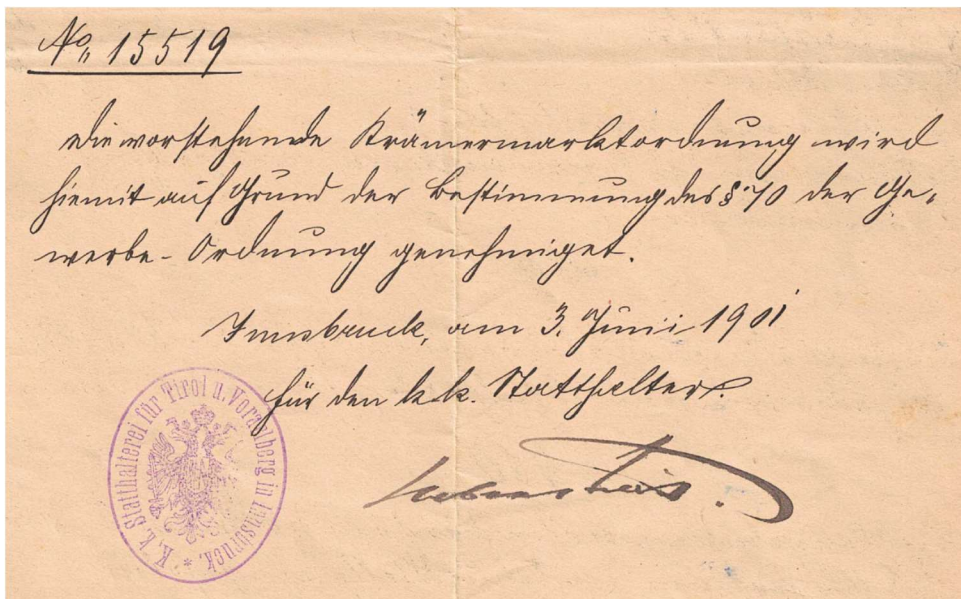 No. 15519
Die vorstehende Krämermarktordnung wird
hiemit auf Grund der Bestimmung des § 70 der Ge-
werbe-Ordnung genehmiget.
Innsbruck, am 3. Junii 1901
Für den k.k. Statthalter.
K. k. Statthalterei für Tirol u. Vorarlberg in Innsbruck. *